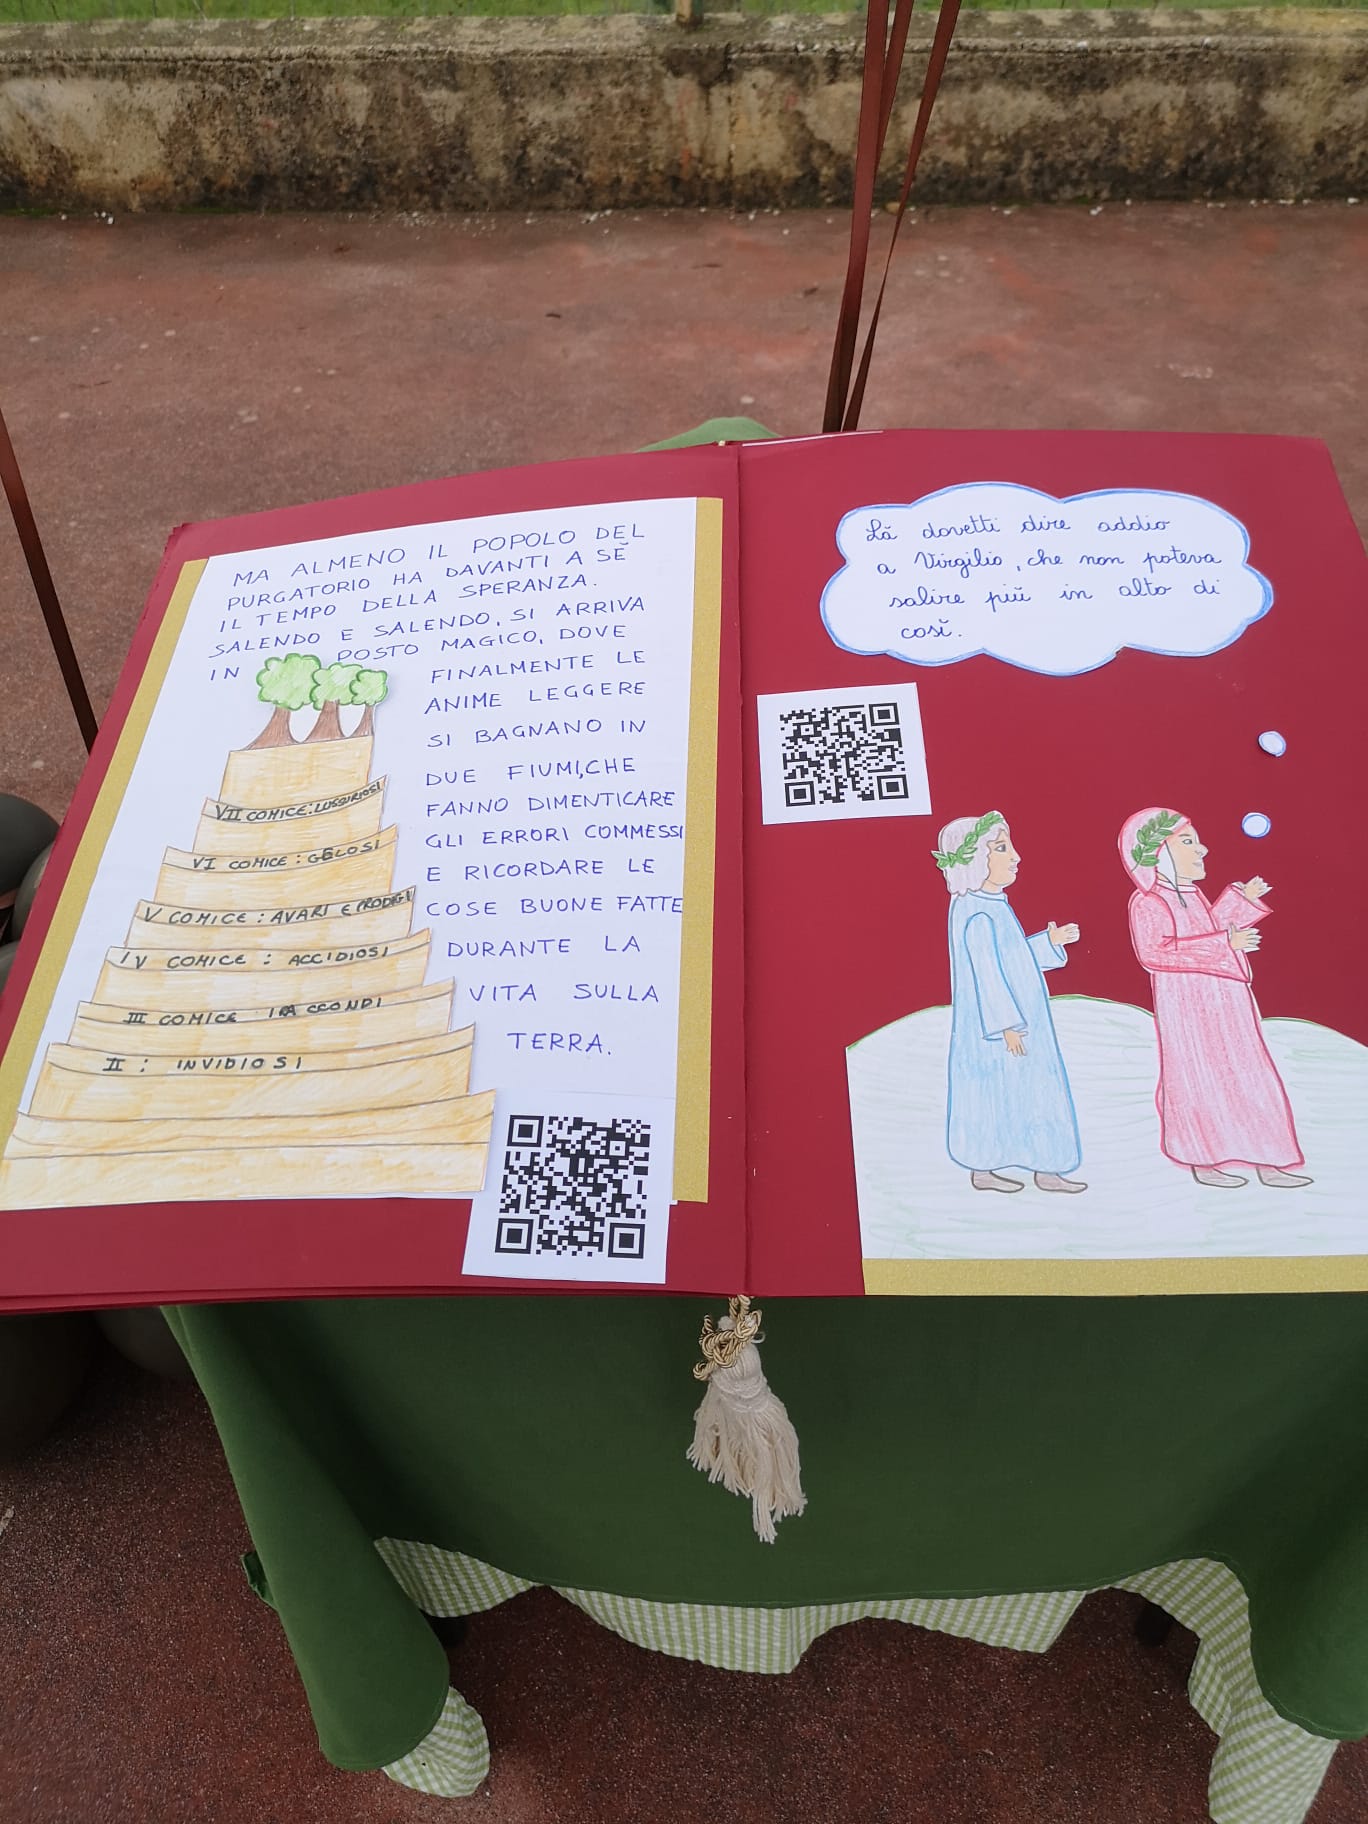 MA ALMENO IL POPOLO DEL
PURGATORIO HA DAVANTI A SÉ
IL TEMPO DELLA SPERANZA.
SALENDO E SALENDO, SI ARRIVA
IN POSTO MAGICO, DOVE
FINALMENTE LE
ANIME LEGGERE
SI BAGNANO IN
DUE FIUMI, CHE
FANNO DIMENTICARE
GLI ERRORI COMMESSI
E RICORDARE LE
COSE BUONE FATTE
DURANTE LA
VITA SULLA
TERRA.
VII COMICE: LUSSURIOSI
VI COMICE: GELOSI
V COMICE: AVARI E PRODIGI
IV COMICE: ACCIDIOSI
III COMICE IRACCONDI
II: INVIDIOSI
Là dovetti dire addio
a Virgilio, che non poteva
salire più in alto di
così.